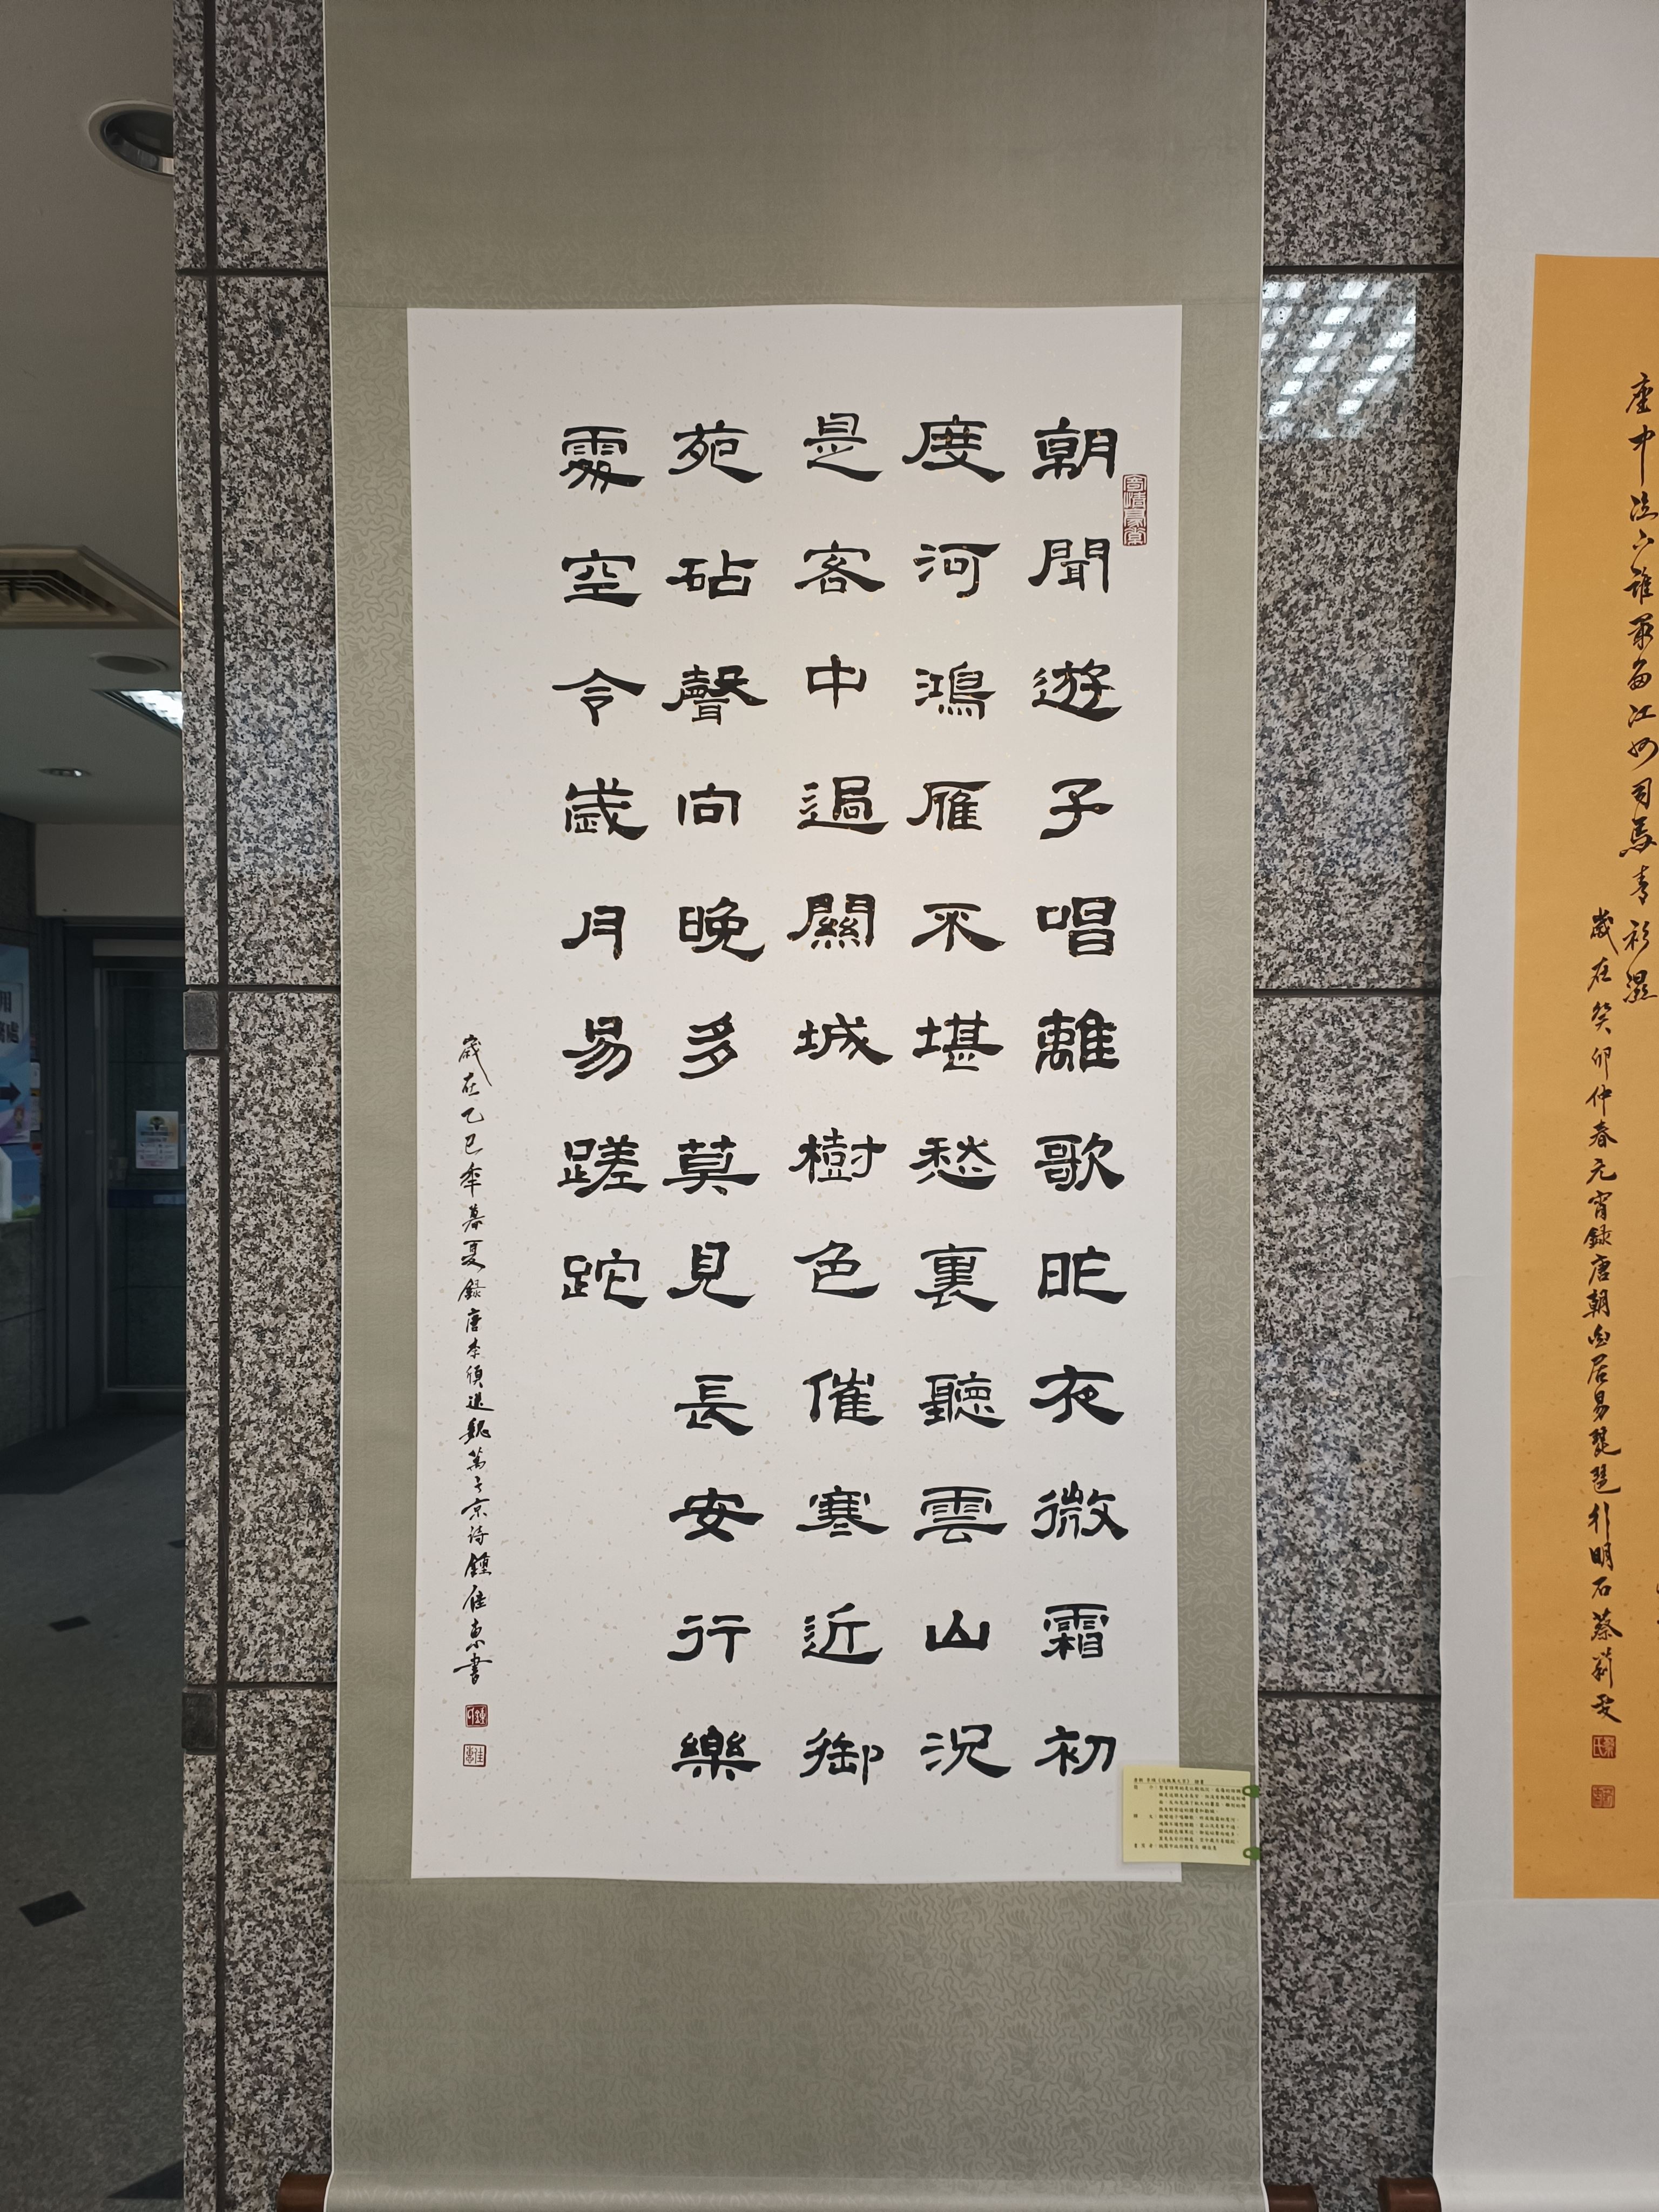 朝聞遊子唱離歌昨夜微霜初
度河鴻雁不堪愁裏聽雲山況
是客中過關城樹色催寒近御
苑砧聲向晚多莫見長安行樂
處空令歲月易蹉跎
歲在乙巳年暮夏錄唐李頎送魏萬之京詩鍾佳惠書
座中泣下誰最多江州司馬青衫濕
歲在癸卯仲春元宵錄唐朝白居易琵琶行明石蔡莉雯